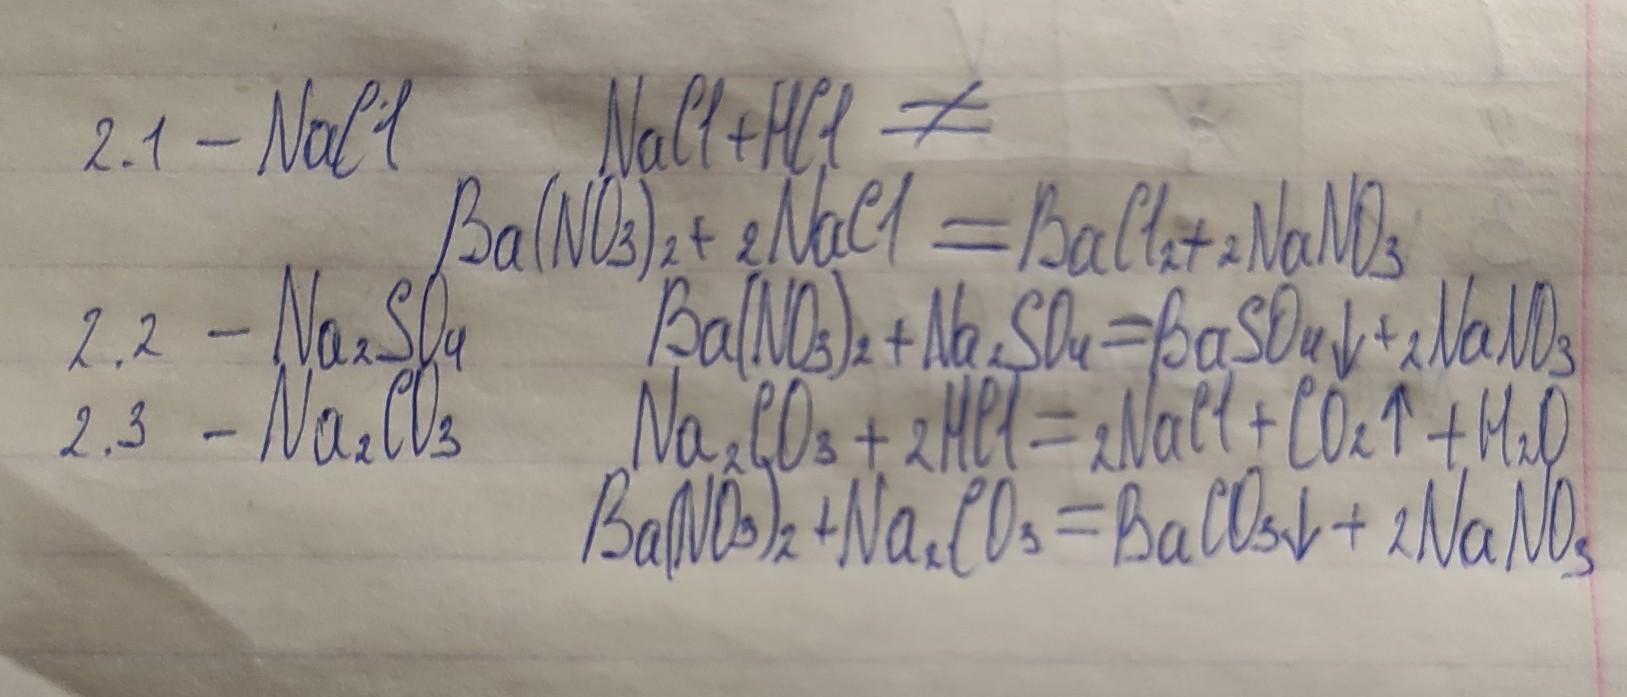 2.1 - NaCl NaCl + HCl ≠
Ba(NO₃)₂ + 2NaCl = BaCl₂ + 2NaNO₃
2.2 - Na₂SO₄ Ba(NO₃)₂ + Na₂SO₄ = BaSO₄↓ + 2NaNO₃
2.3 - Na₂CO₃ Na₂CO₃ + 2HCl = 2NaCl + CO₂↑ + H₂O
Ba(NO₃)₂ + Na₂CO₃ = BaCO₃↓ + 2NaNO₃